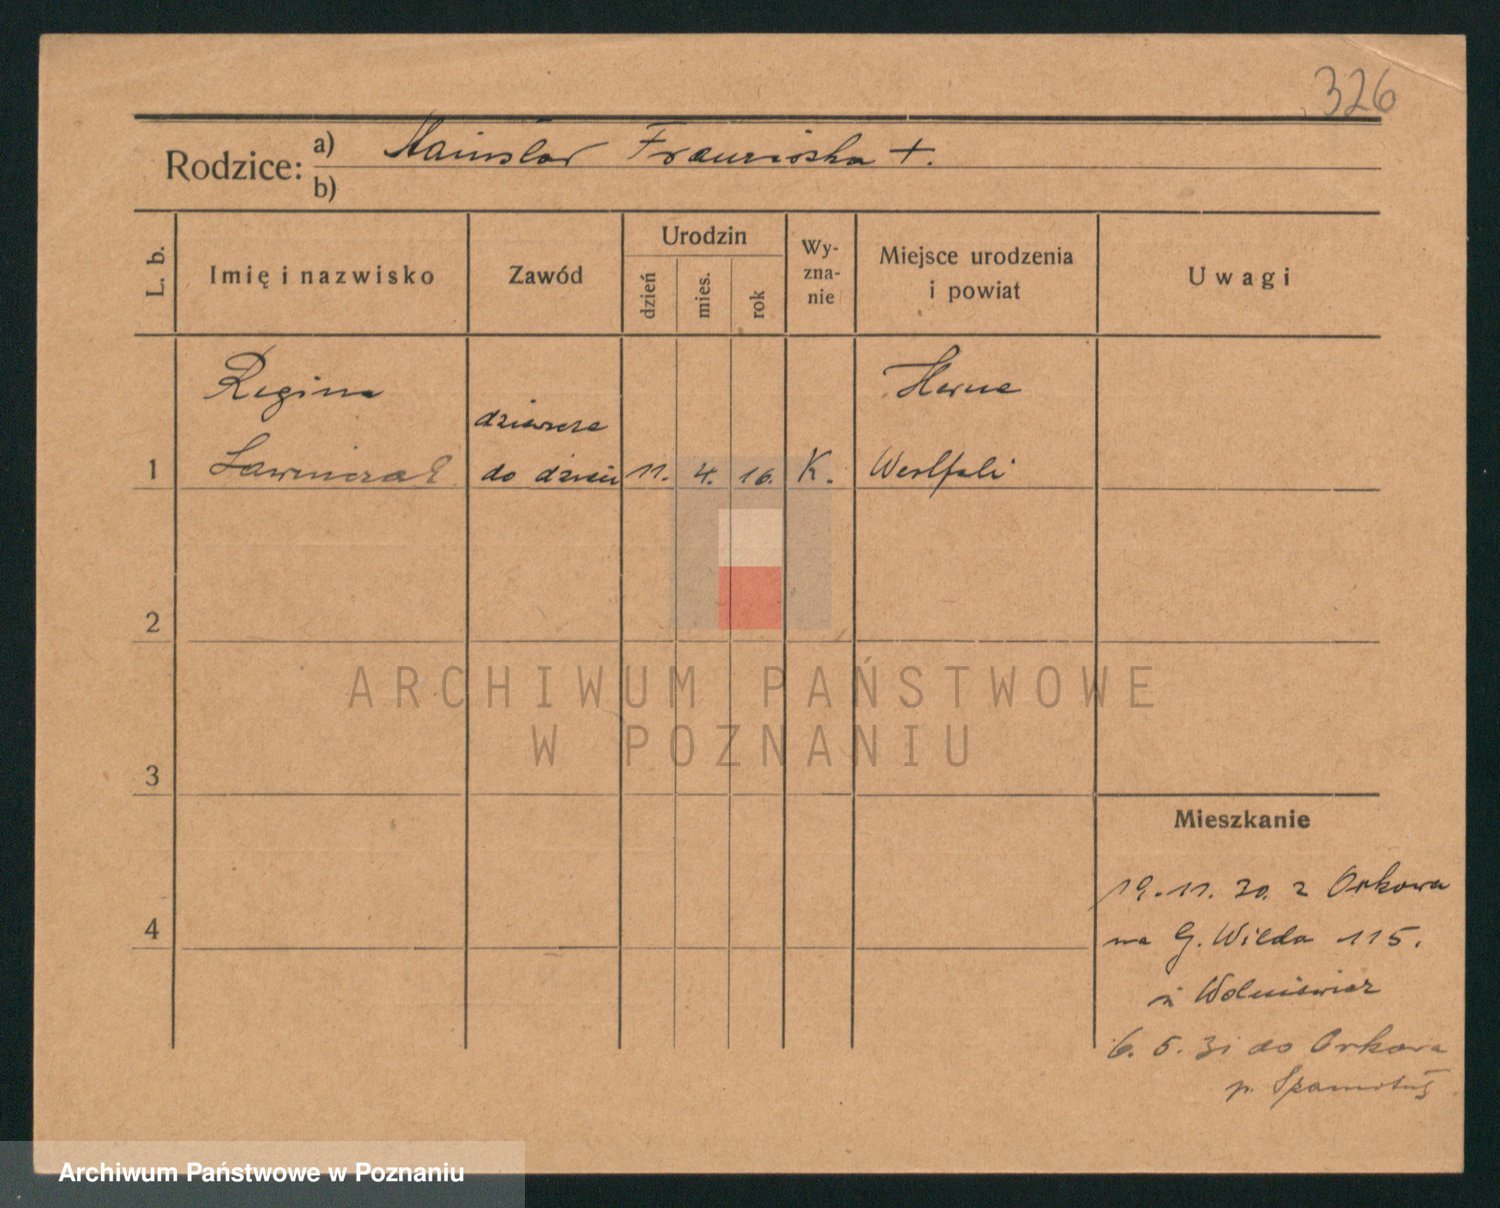 326
Rodzice: a) Stanisław Franciszka +.
b)
L. b. Imię i nazwisko Zawód Urodzin dzień mies. rok Wy-zna-nie Miejsce urodzenia i powiat Uwagi
Regina Herne
dziewcze
1 Ławniczak do dzieci 11. 4. 16. K. Westfali
2
3
Mieszkanie
19.11.30. z Orkowa
4
na G. Wilda 115.
u Wolniewicz
6.5.31 do Orkowa
p. Szamotuł
ARCHIWUM PAŃSTWOWE
W POZNANIU
Archiwum Państwowe w Poznaniu